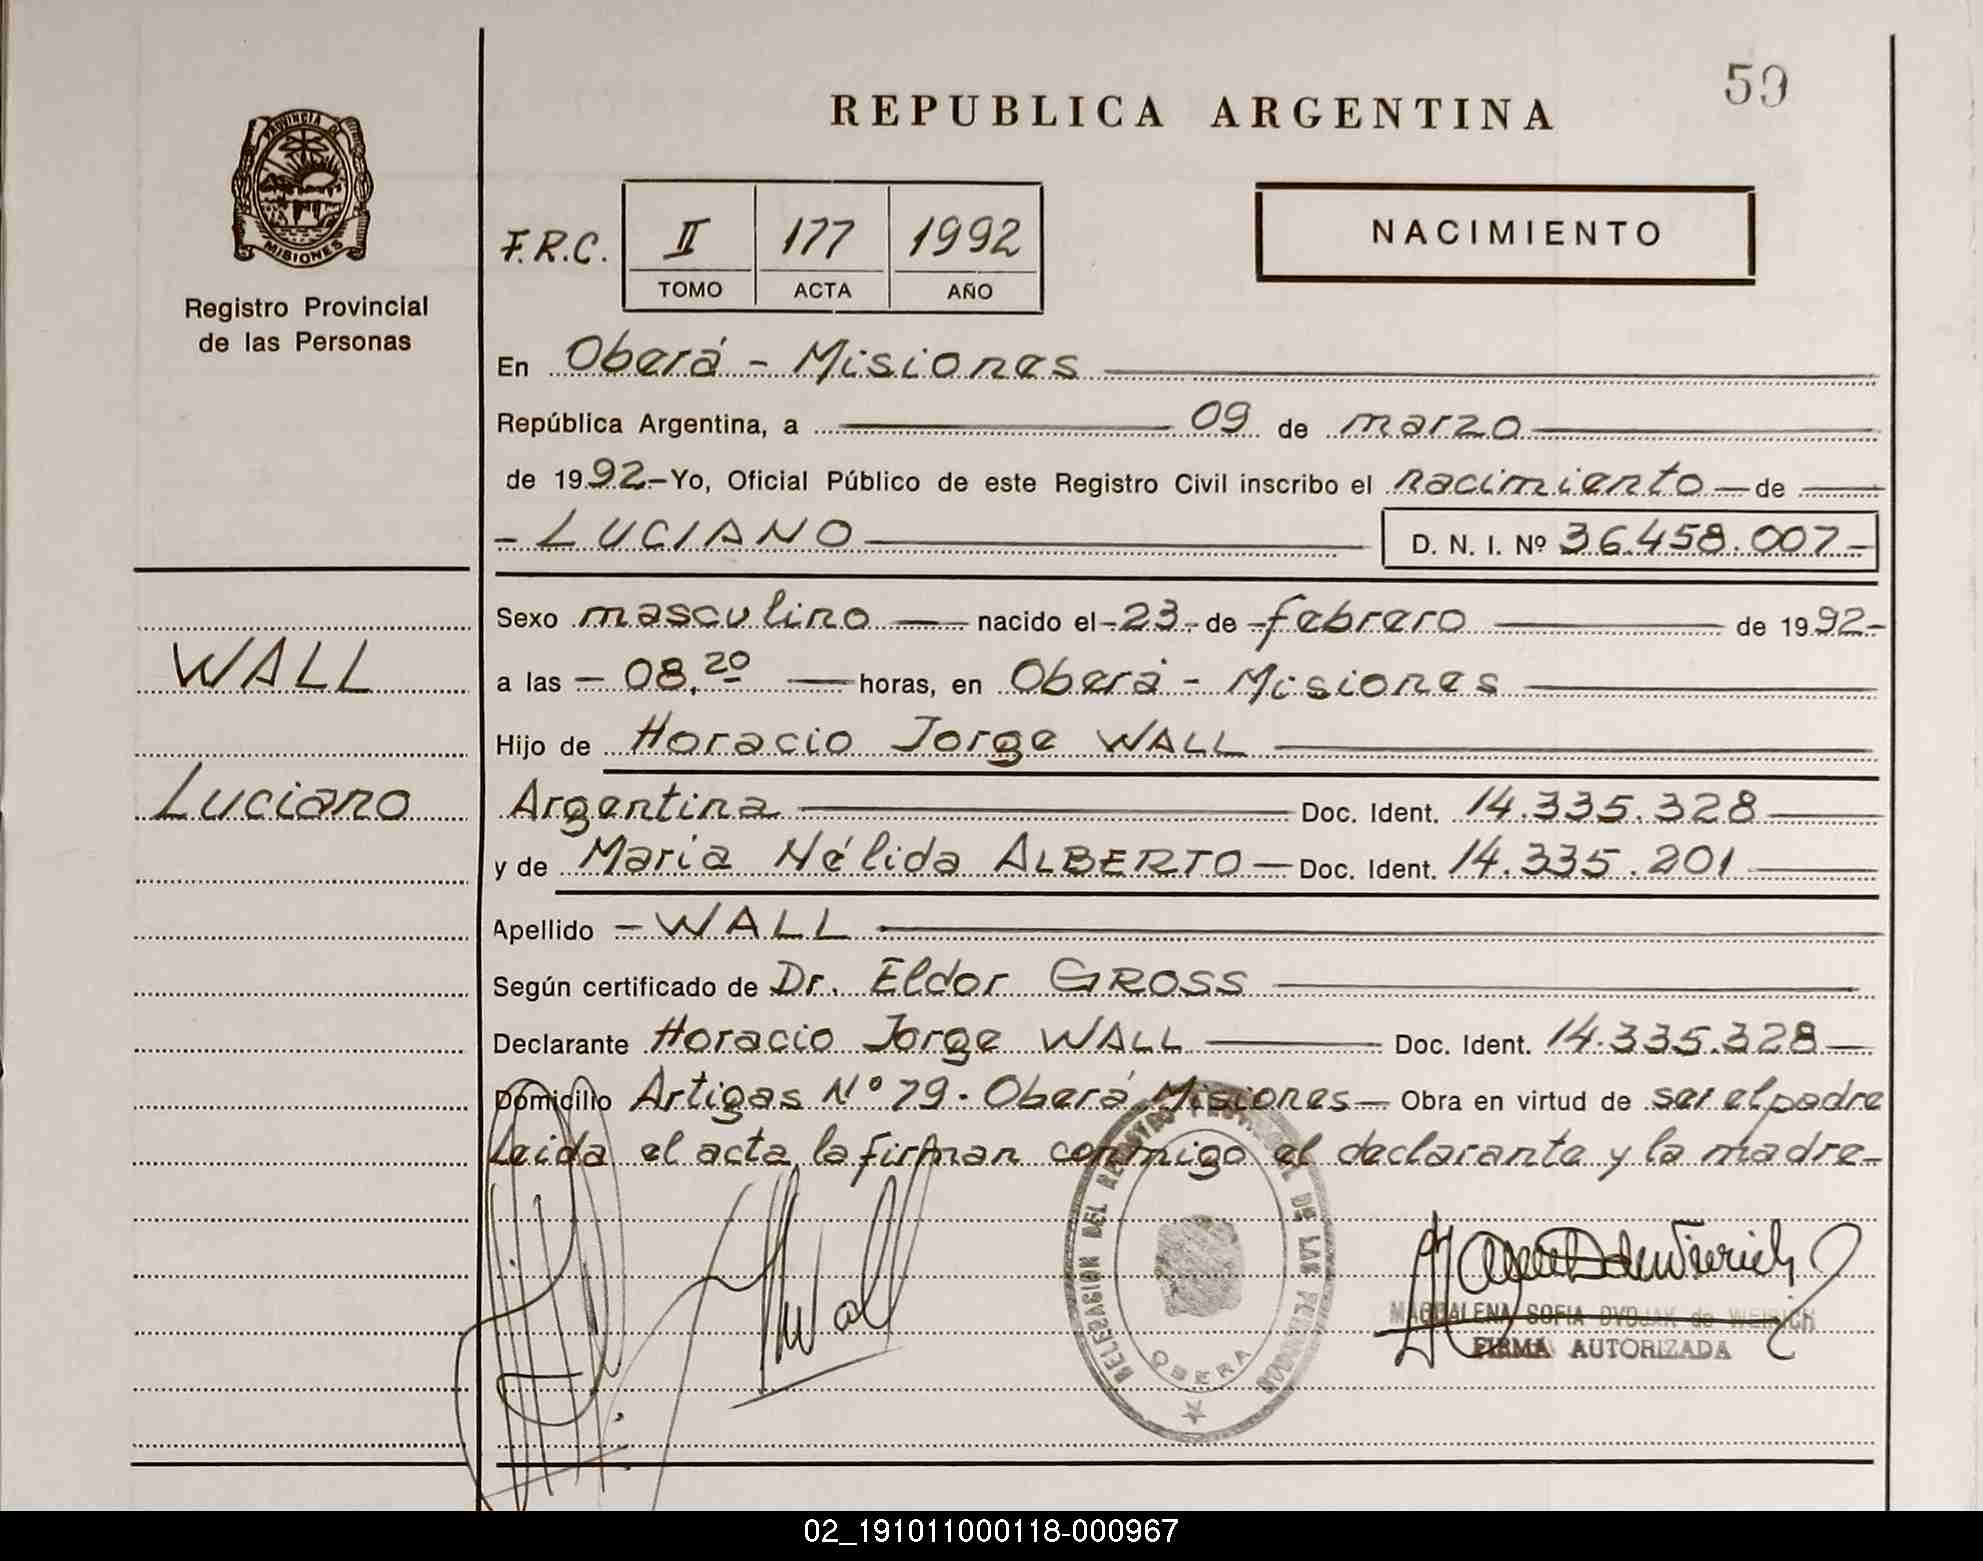 59
REPUBLICA ARGENTINA
PROVINCIA DE
MISIONES
Registro Provincial
de las Personas
F.R.C. II 177 1992
TOMO ACTA AÑO
NACIMIENTO
En Oberá - Misiones
República Argentina, a 09 de marzo
de 1992.- Yo, Oficial Público de este Registro Civil inscribo el nacimiento - de
- LUCIANO D. N. I. Nº 36.458.007-
Sexo masculino - nacido el - 23 - de - febrero de 1992.-
WALL
a las - 08,20 - horas, en Oberá - Misiones
Hijo de Horacio Jorge WALL
Luciano
Argentina Doc. Ident. 14.335.328
y de María Nélida ALBERTO - Doc. Ident. 14.335.201
Apellido - WALL
Según certificado de Dr. Eldor GROSS
Declarante Horacio Jorge WALL Doc. Ident. 14.335.328
Domicilio Artigas Nº 79 - Oberá Misiones - Obra en virtud de ser el padre
Leida el acta, la firman conmigo el declarante y la madre-
Wall
DELEGACION DEL REGISTRO PROVINCIAL DE LAS PERSONAS
OBERA
MAGDALENA SOFIA DYDJAK de WEIRICH
FIRMA AUTORIZADA
02_191011000118-000967